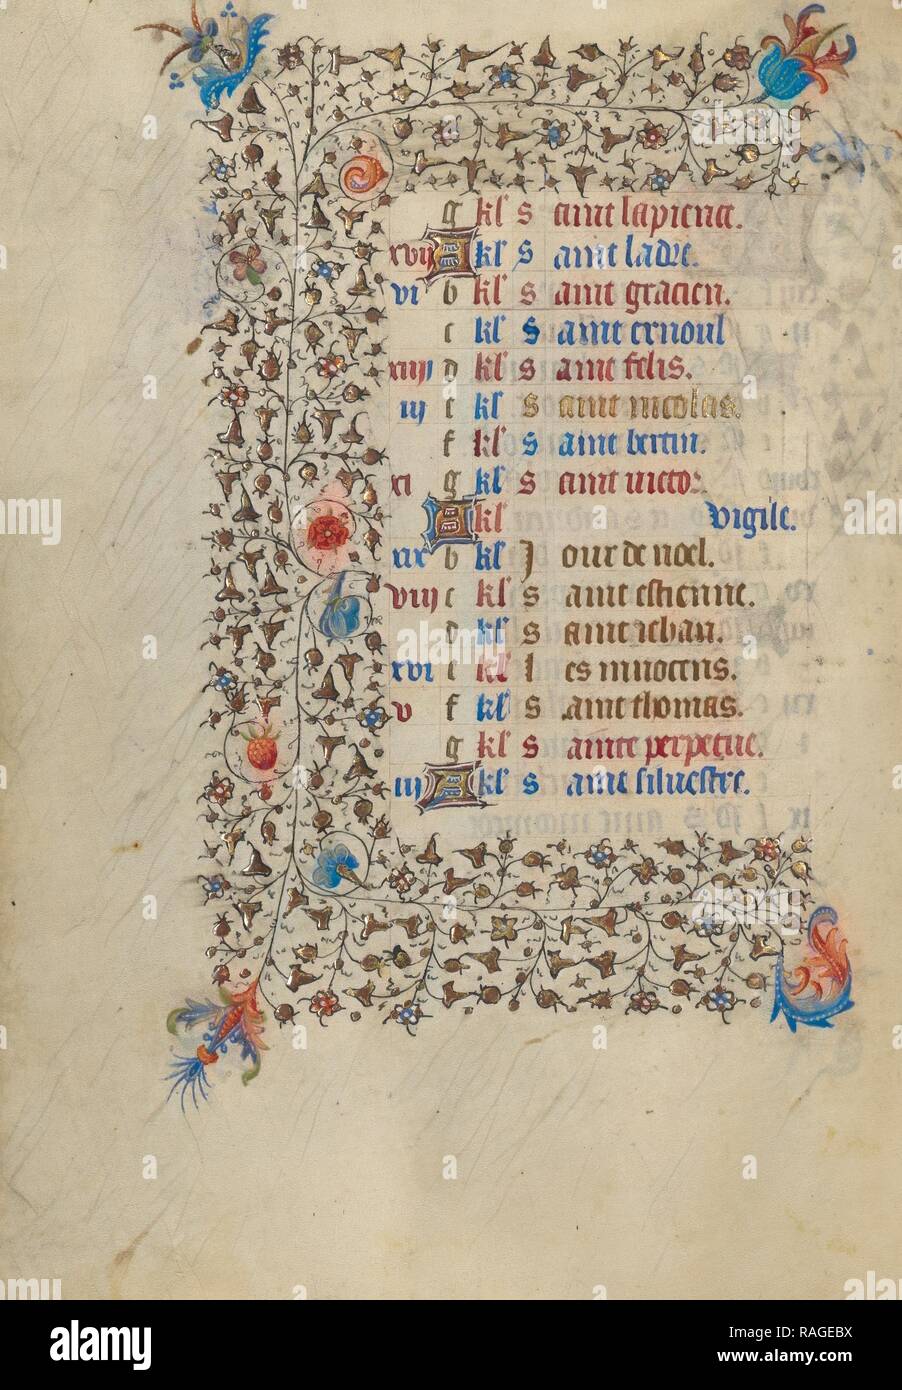 g kl' S aint sapience.
xvij A kl' S aint ladre.
vi b kl' S aint gracien.
c kl' S aint ernoul
xiiij d kl' S aint felis.
iij e kl' S aint nicolas.
f kl' S aint bertin.
xi g kl' S aint victor
A kl' vigile.
xix b kl' J our de noel.
viij c kl' S aint estienne.
d kl' S aint iehan.
xvi e kl' l es innocens.
v f kl' S aint thomas.
g kl' S ainte perpetue.
iij A kl' S aint silvestre.
alamy
Image ID: RAGEBX
www.alamy.com